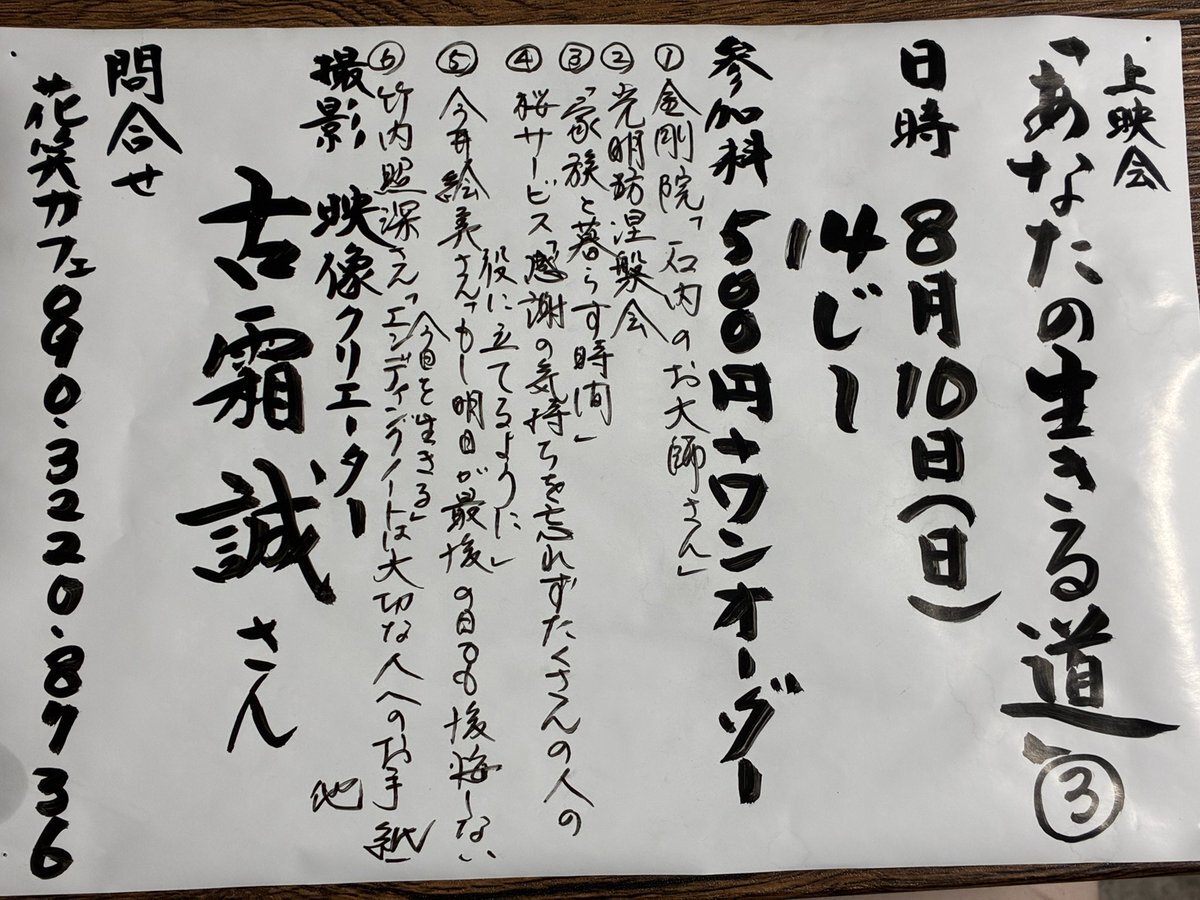 上映会
「あなたの生きる道」③
日時 8月10日(日)
14じー
参加料 500円+ワンオーダー
①金剛院「石内のお大師さん」
②光明坊涅槃会
③「家族と暮らす時間」
④桜サービス「感謝の気持ちを忘れずたくさんの人の
役に立てるように」
⑤今井絵美さん「もし明日が最後の日でも後悔しない
今日を生きる」
⑥竹内照深さん「エンディングノートは大切な人へのお手紙」
他
撮影 映像クリエーター
古霜誠さん
問合せ
花笑カフェ090.3220.8736